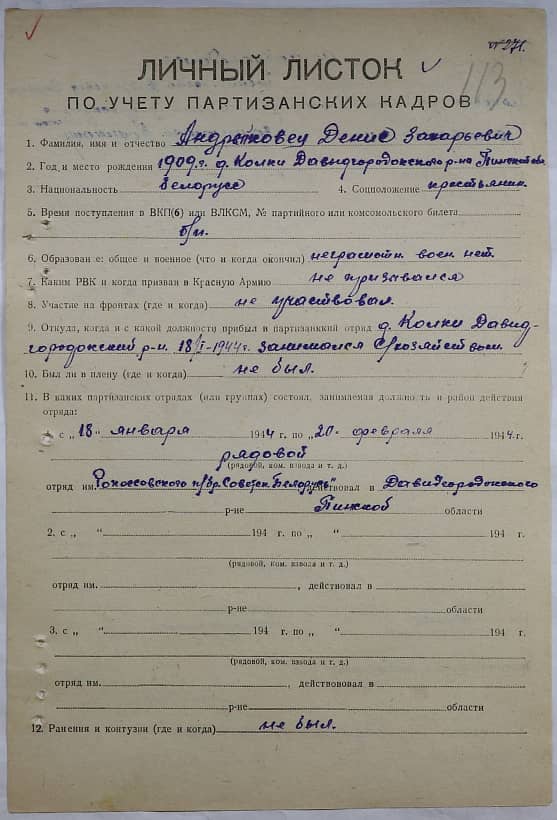 271.
113
ЛИЧНЫЙ ЛИСТОК
ПО УЧЕТУ ПАРТИЗАНСКИХ КАДРОВ
1. Фамилия, имя и отчество Андрыковец Денис Захарьевич
2. Год и место рождения 1909 г. д. Колки Давидгородокского р-на Пинской обл.
3. Национальность белорусс 4. Соцположение крестьянин.
5. Время поступления в ВКП(б) или ВЛКСМ, № партийного или комсомольского билета
б/п.
6. Образован е: общее и военное (что и когда окончил) неграмотн. воен. нет.
7. Каким РВК и когда призван в Красную Армию не призывался
8. Участие на фронтах (где и когда) не участвовал.
9. Откуда, когда и с какой должности прибыл в партизанккий отряд д. Колки Давид-
городокский р-н. 18/I-1944 г. занимался с/хозяйством.
10. Был ли в плену (где и когда) не был.
11. В каких партизанских отрядах (или группах) состоял, занимаемая должно ть и район действия
отряда:
1. с „18" января 1944 г. по „20" февраля 1944 г.
рядовой
(рядовой, ком. взвода и т. д.)
отряд им. Рокоссовского п/бр. Советск. Беларусь" действовал в Давидгородокского
р-не Пинской области
2. с „ " 194 г. по „ " 194 г.
(рядовой, ком. взвода и т. д.)
отряд им. , действовал в
р-не области
3. с „ " 194 г. по „ " 194 г.
(рядовой, ком. взвода и т. д.)
отряд им. , действовал в
р-не области
12. Ранения и контузии (где и когда) не был.